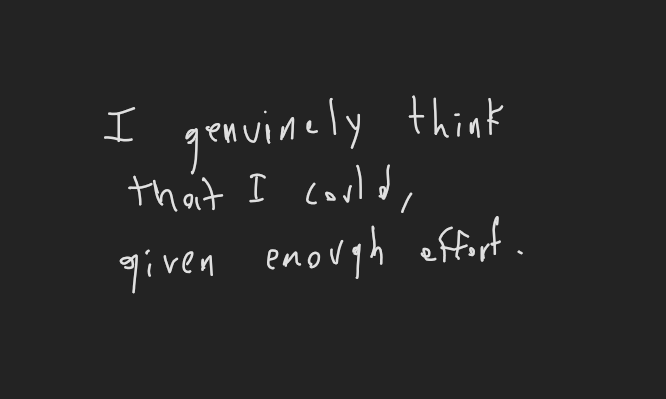 I genuinely think
that I could,
given enough effort.